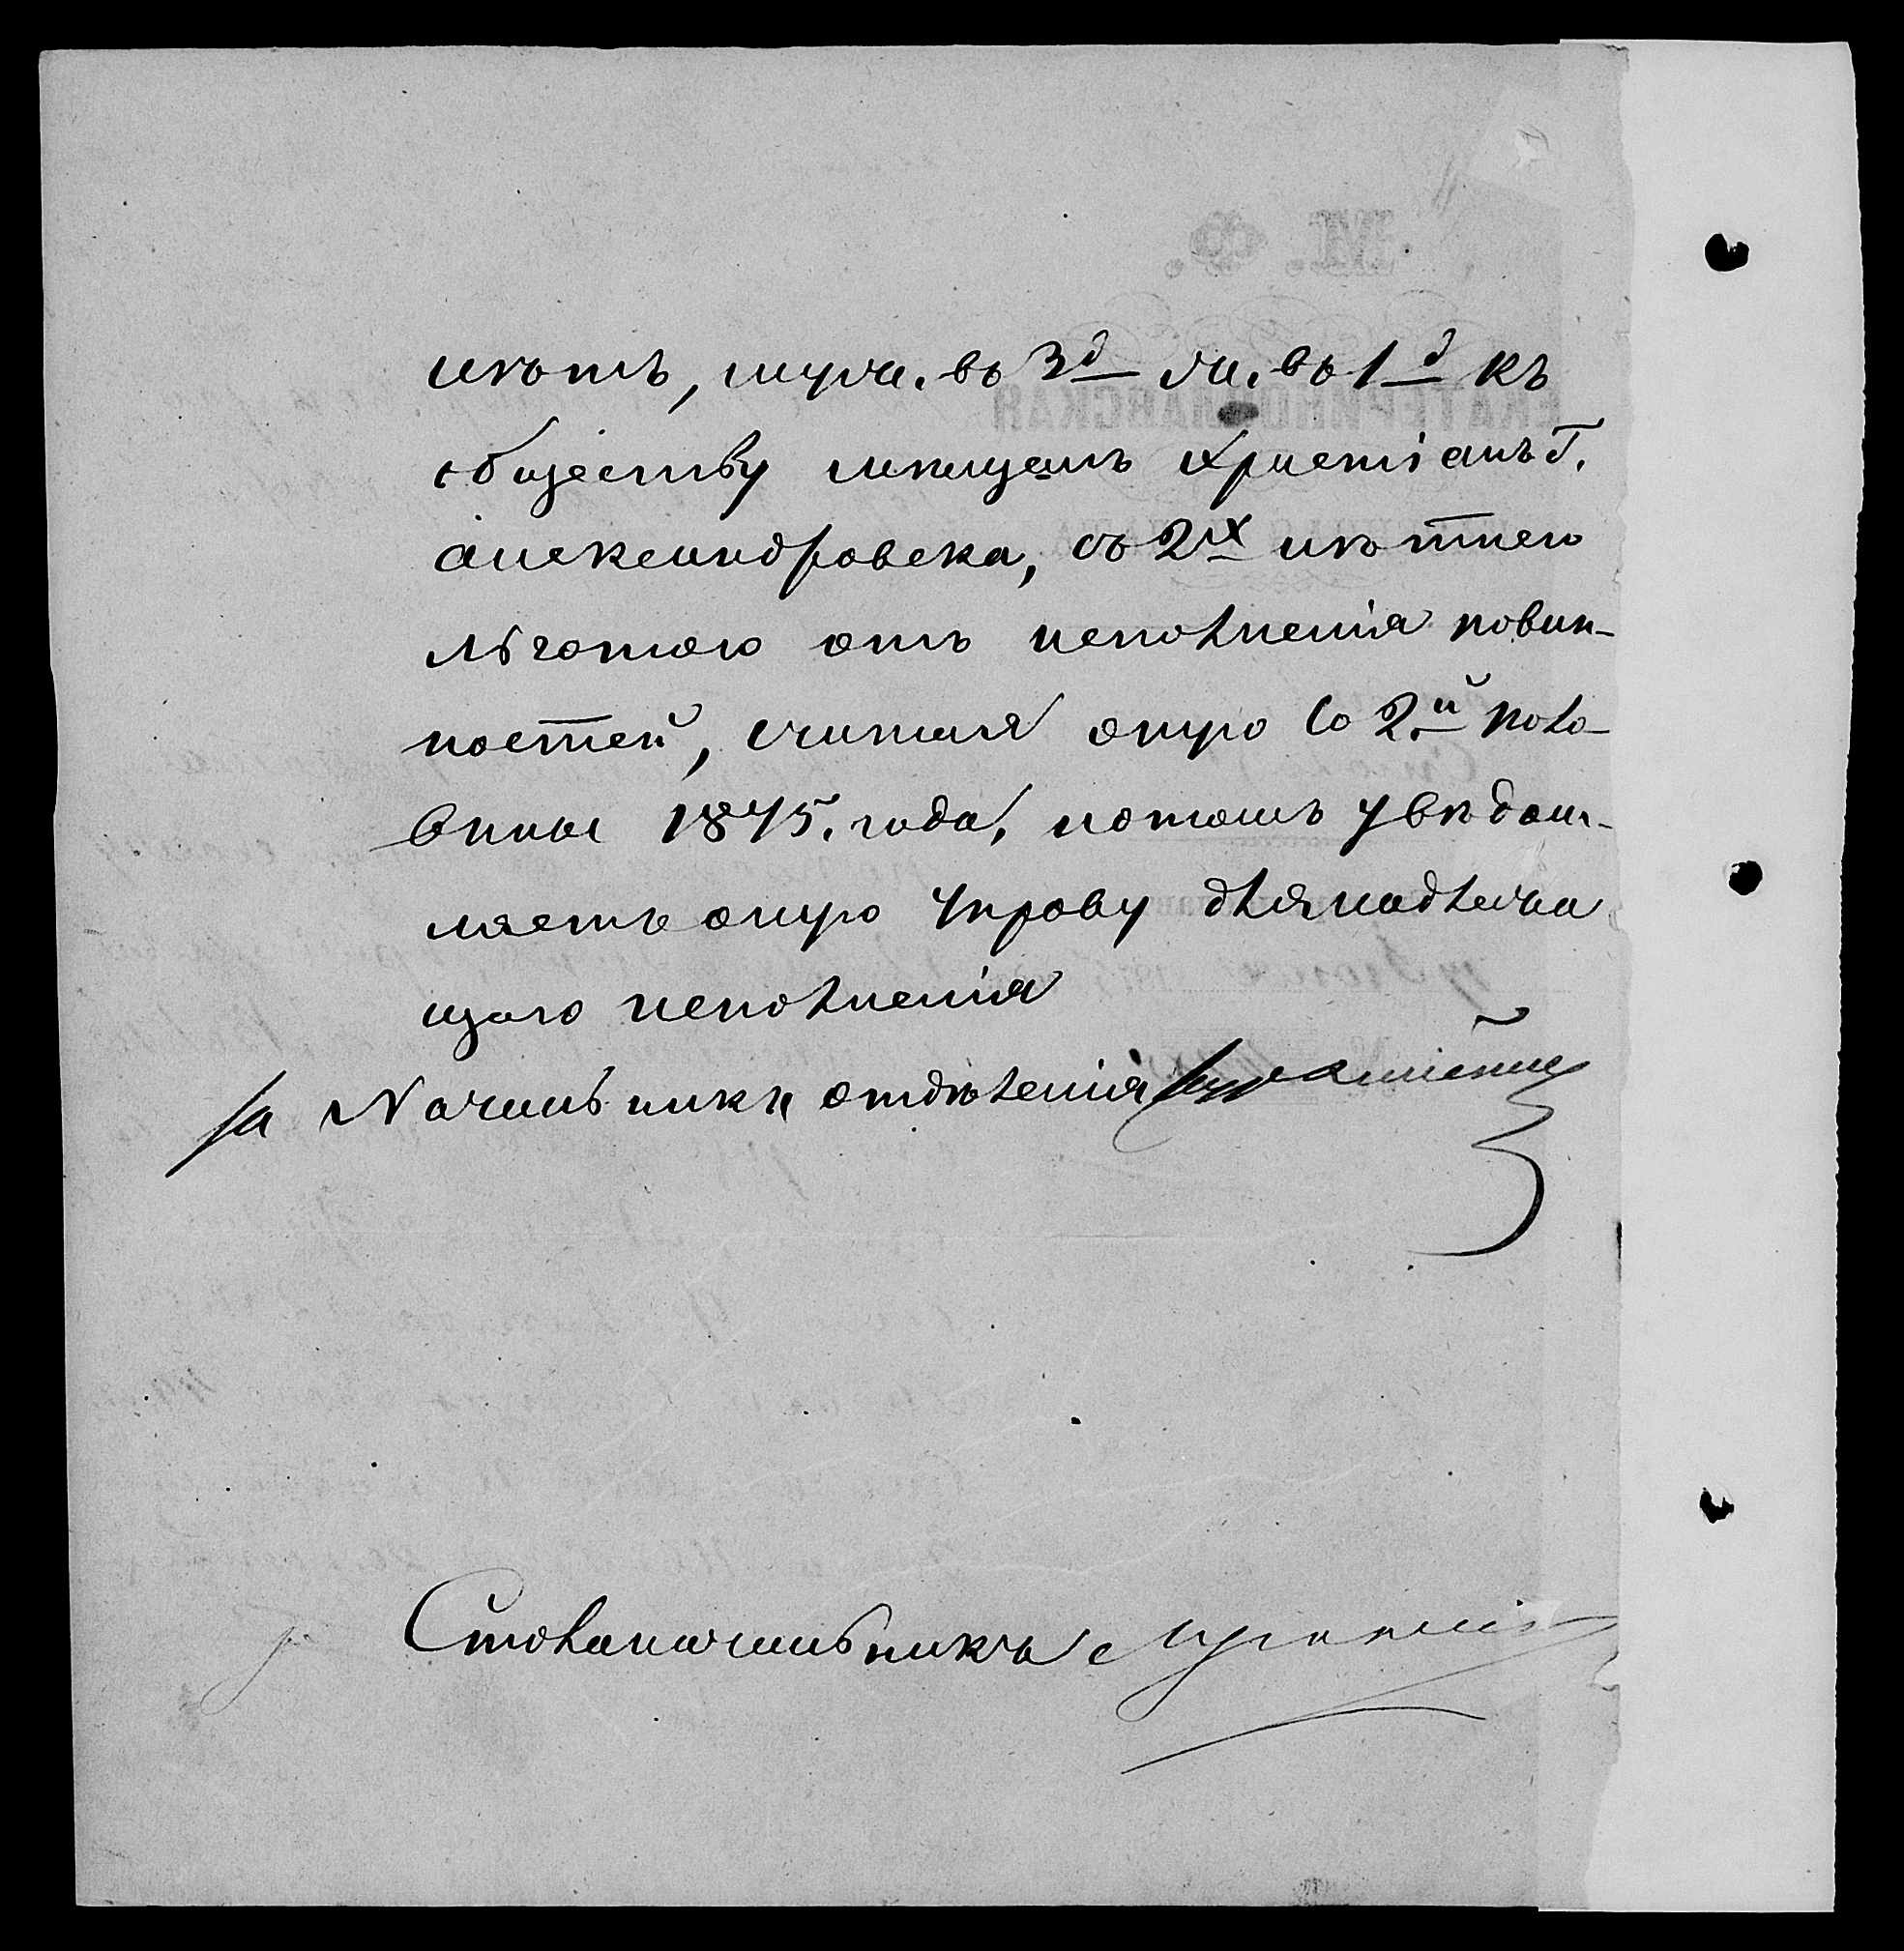 лѣтъ, муж. въ 3д жен. въ 1д къ
обществу мѣщанъ христіанъ г.
Александровска, съ 2х лѣтнею
льготою отъ исполненія повин-
ностей, считая оную со 2й поло-
вины 1875. года, о томъ увѣдом-
ляетъ оную Управу для надлежа
щаго исполненія
За Начальника отдѣленія
Столоначальникъ